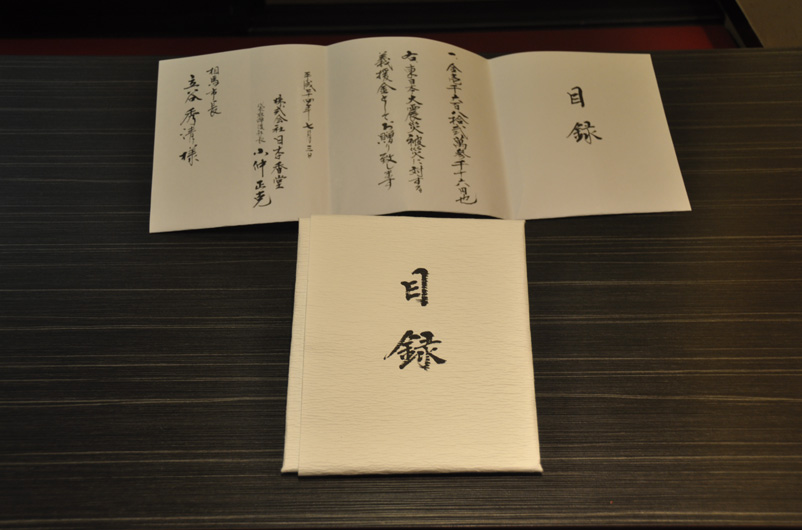 目録
一、金壱千六百八拾弐萬
右東日本大震災被災に対する
義援金としてお贈り致します
平成
株式会社日本香堂
代表取締役社長 小仲正克
相馬市長
立谷秀清様
目録